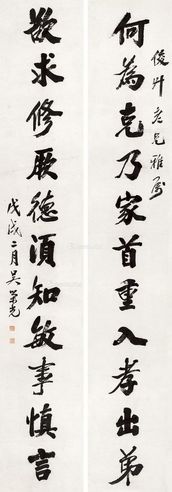 俊升老兄雅屬
何為克乃家首重入孝出弟
欲求修厥德須知敏事慎言
戊戌二月吳榮光